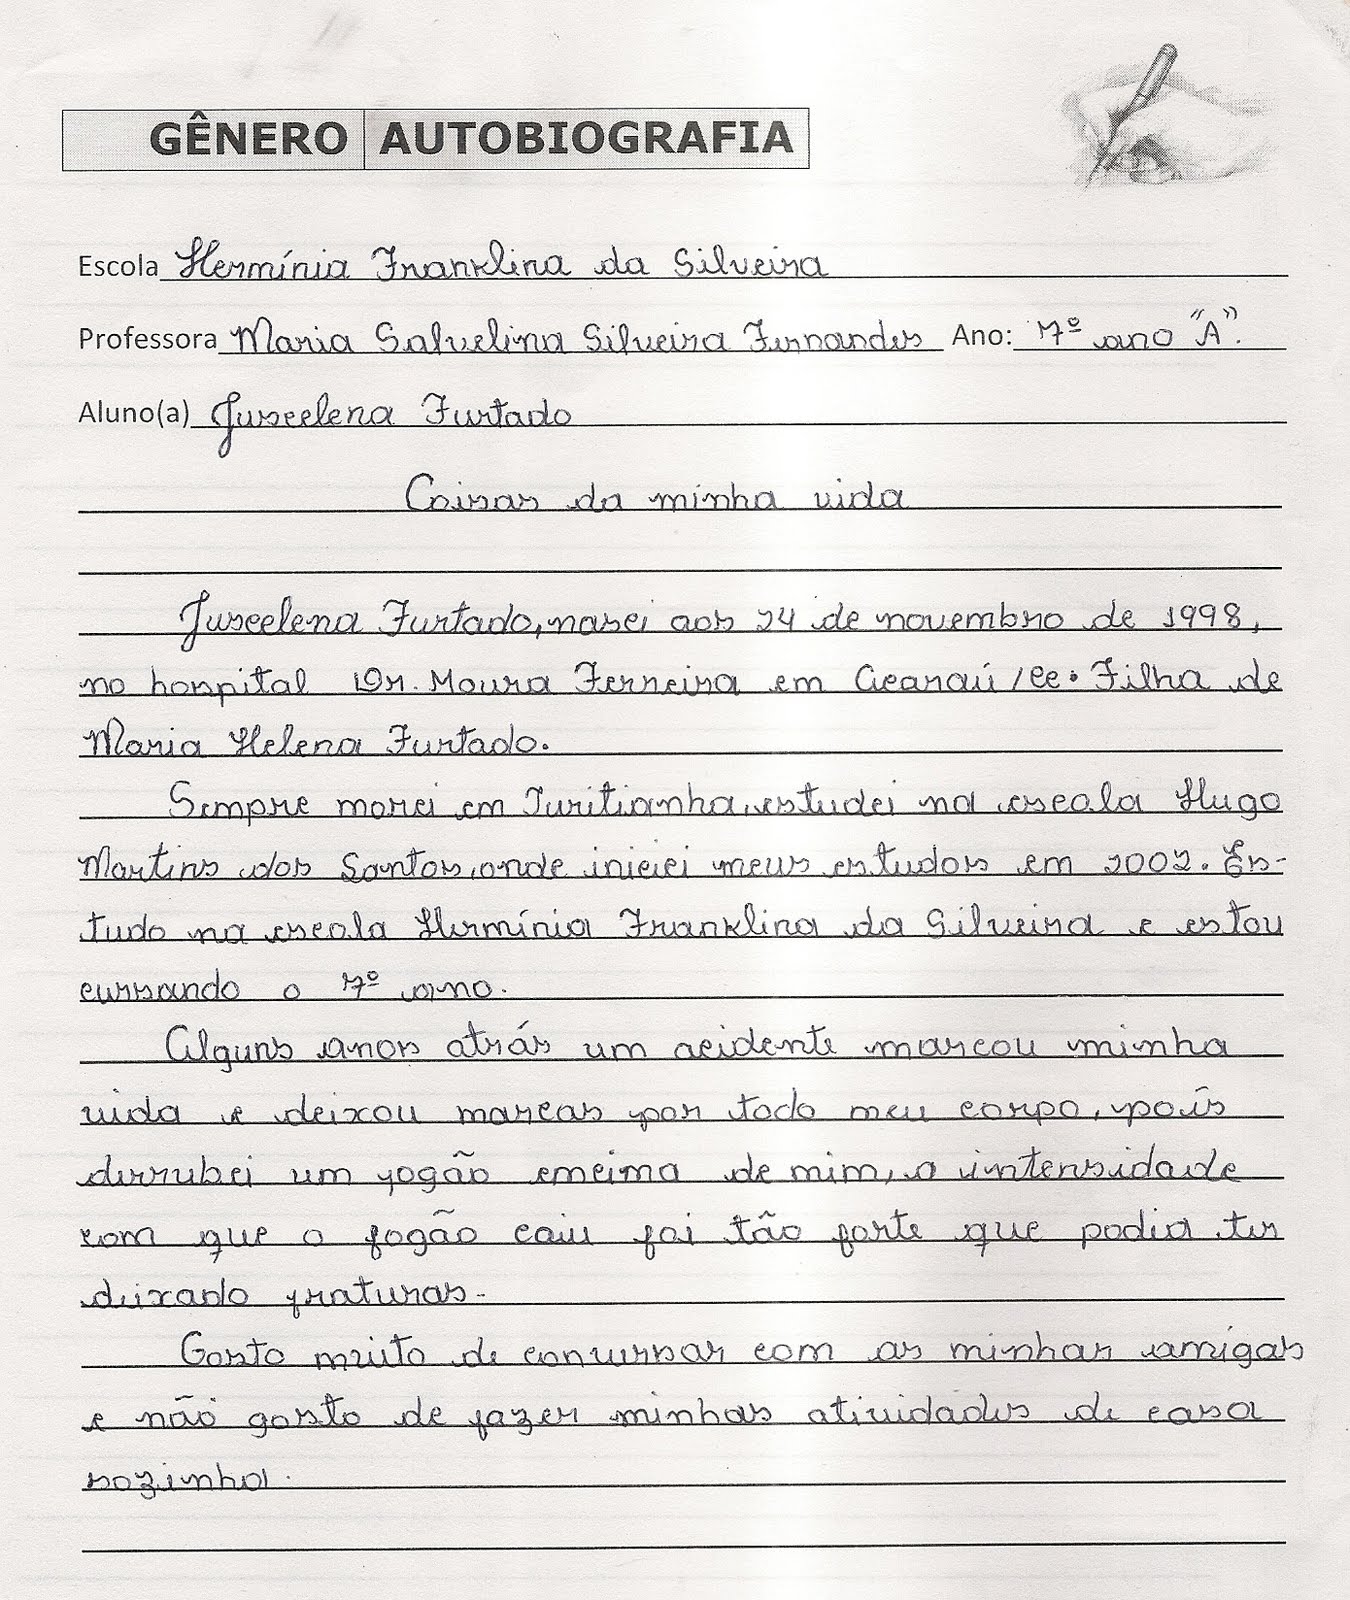 GÊNERO AUTOBIOGRAFIA
Escola Hermínia Franklina da Silveira
Professora Maria Salvelina Silveira Fernandes Ano: 7º ano "A".
Aluno(a) Juscelena Furtado
Coisas da minha vida
Juscelena Furtado, nasci aos 24 de novembro de 1998,
no hospital Dr. Moura Ferreira em Acaraú/Ce. Filha de
Maria Helena Furtado.
Sempre morei em Juritianha, estudei na escola Hugo
Martins dos Santos, onde iniciei meus estudos em 2002. Es-
tudo na escola Hermínia Franklina da Silveira e estou
cursando o 7º ano.
Alguns anos atrás um acidente marcou minha
vida e deixou marcas por todo meu corpo, pois
derrubei um fogão emcima de mim, a intensidade
com que o fogão caiu foi tão forte que podia ter
deixado fraturas.
Gosto muito de conversar com as minhas amigas
e não gosto de fazer minhas atividades de casa
sozinha.